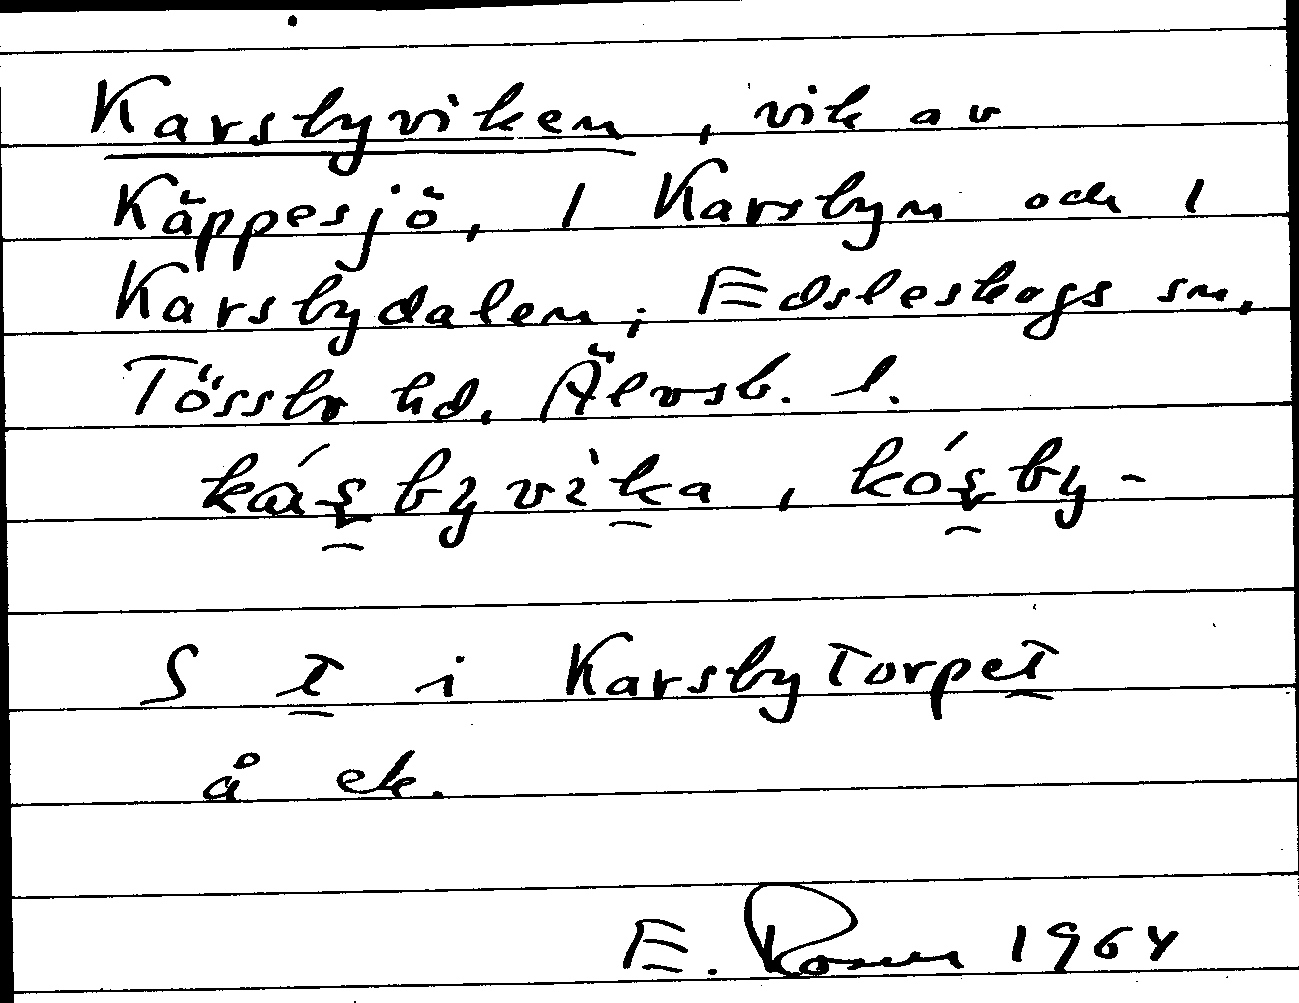 Karsbyviken, vik av
Käppesjö, 1 Karsbyn och 1
Karsbydalen; Edsleskogs sn,
Tössbo hd. Älvsb. l.
káʂbyvìka, kóʂby-
S t i Karsbytorpet
å ek.
E. Rosen 1964